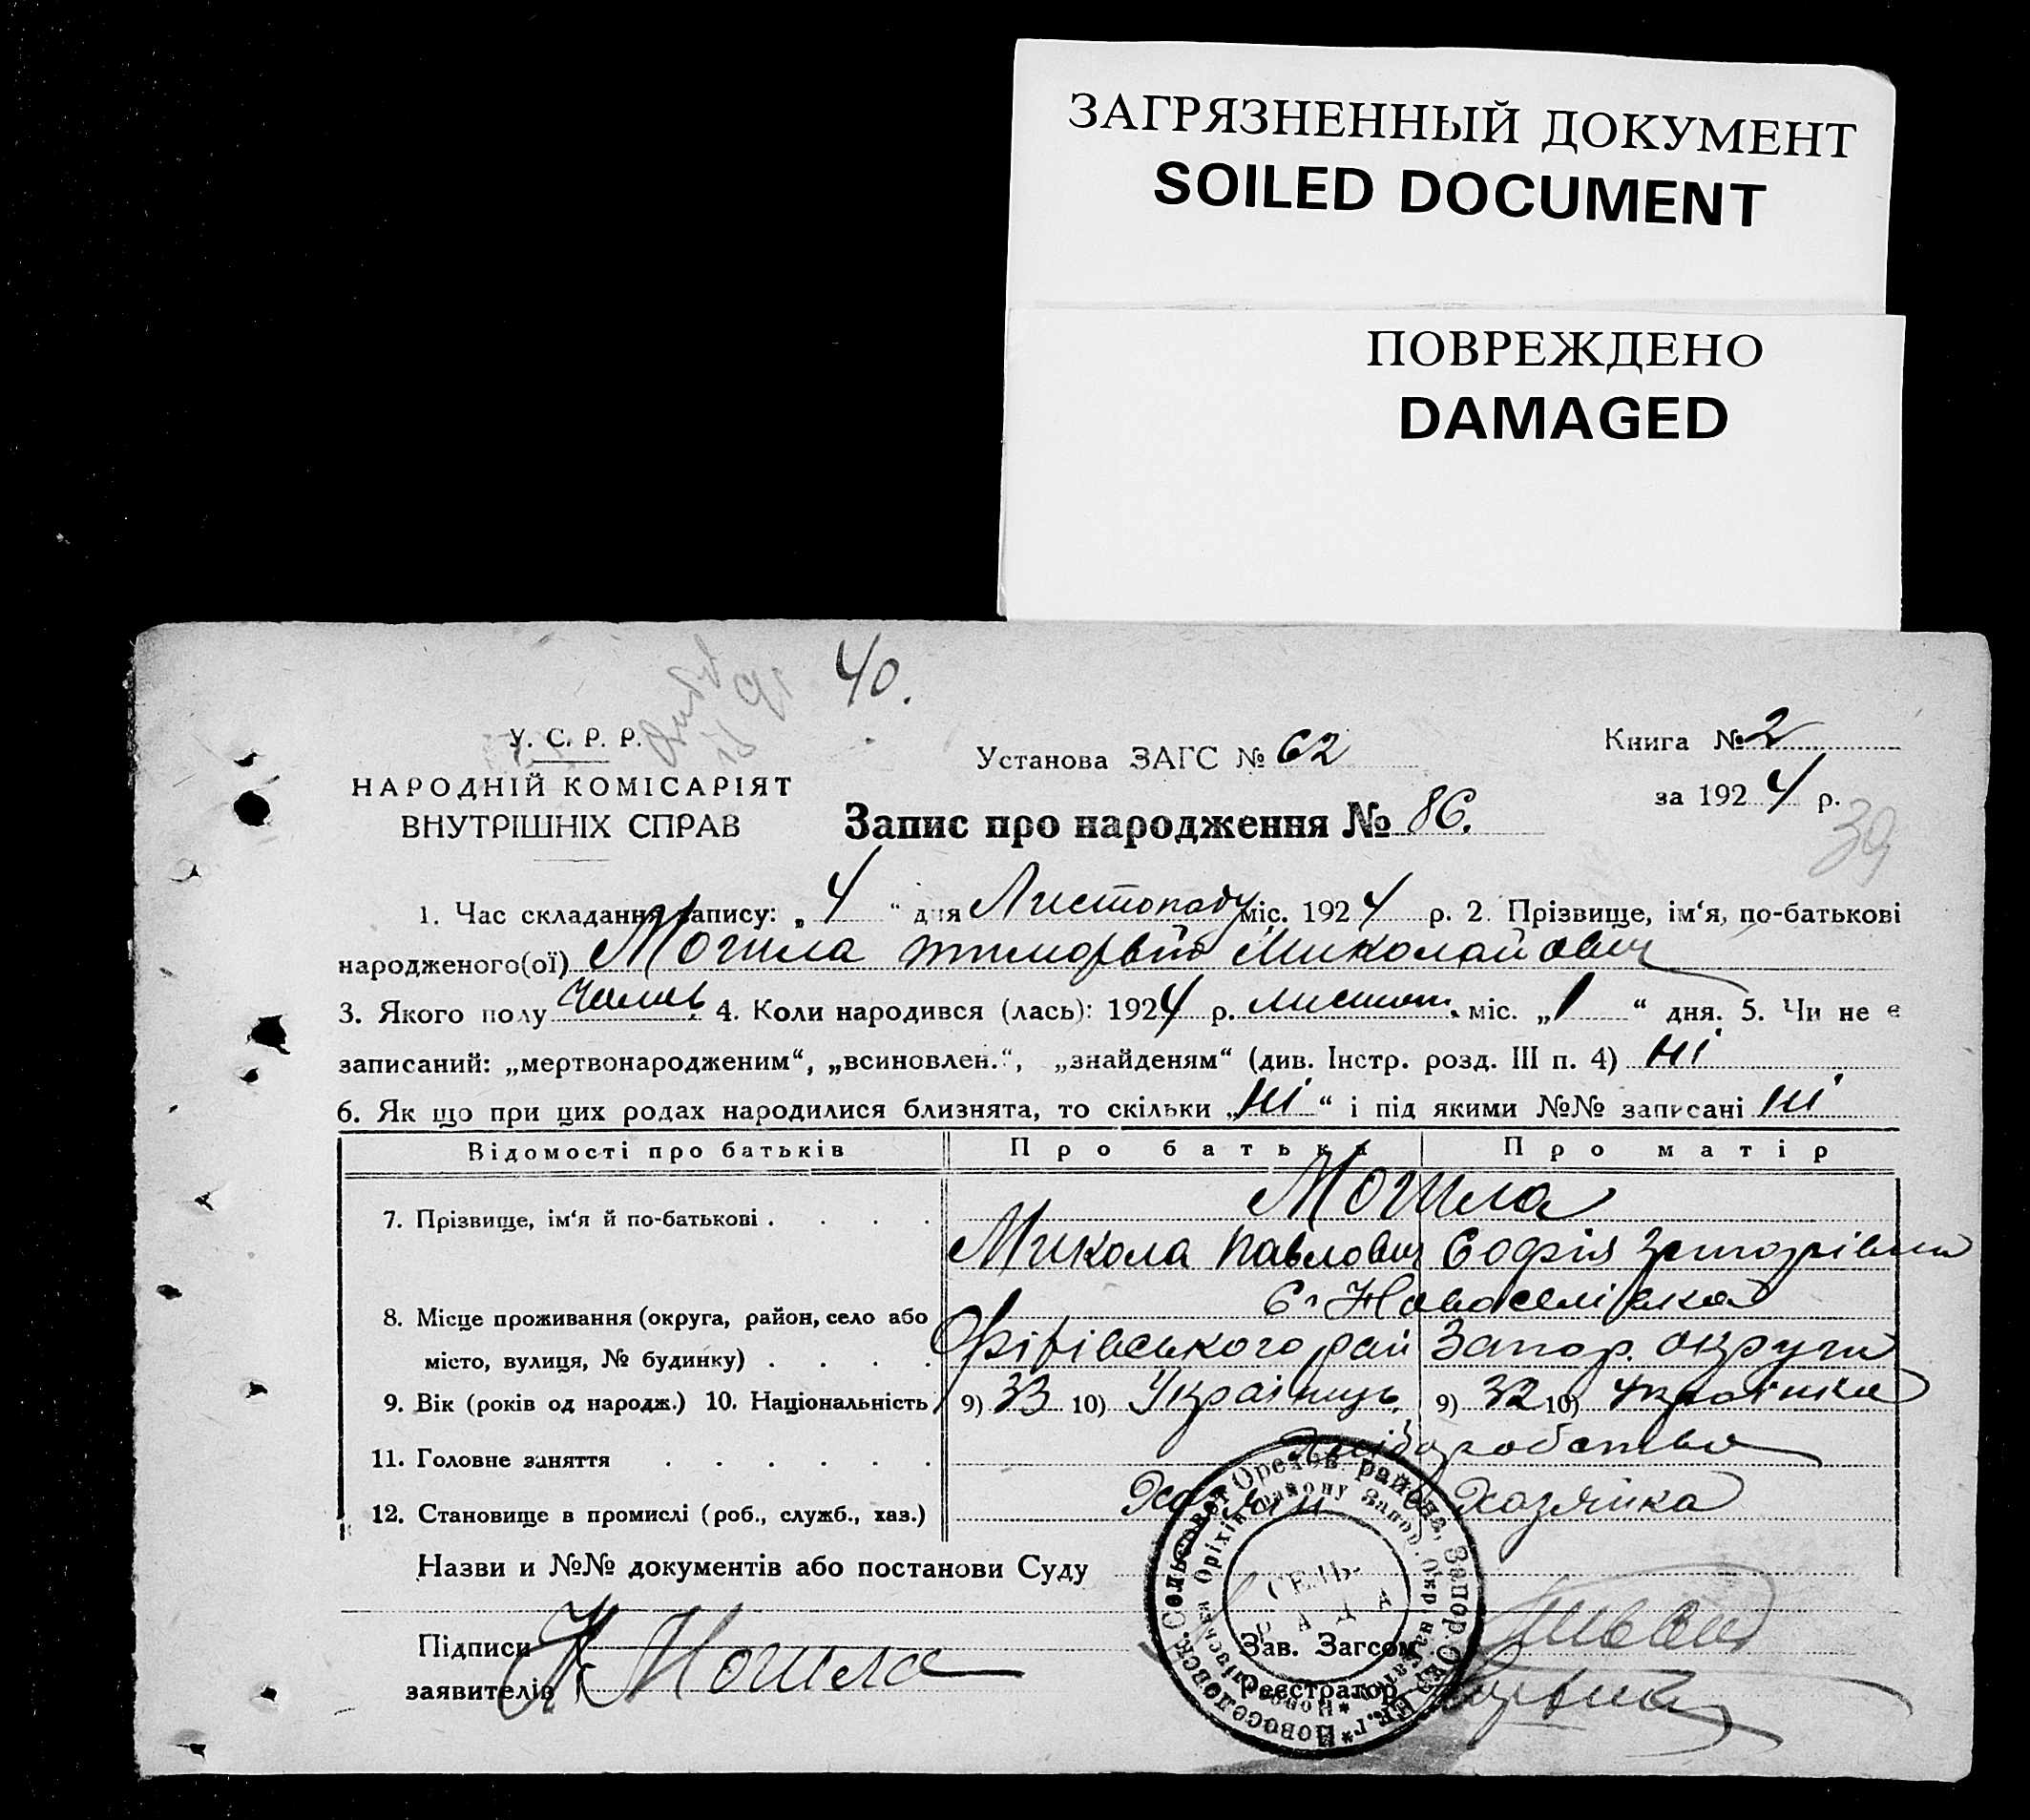 ЗАГРЯЗНЕННЫЙ ДОКУМЕНТ
SOILED DOCUMENT
ПОВРЕЖДЕНО
DAMAGED
40.
У. С. Р. Р.
НАРОДНІЙ КОМІСАРІЯТ
ВНУТРІШНІХ СПРАВ
Установа ЗАГС № 62
Книга № 2
за 1924 р.
39
Запис про народження № 86.
1. Час складання запису: „4“ дня Листопаду міс. 1924 р. 2. Прізвище, ім‘я, по-батькові
народженого(ої) Могила Тимофей Миколайович
3. Якого полу Чолов. 4. Коли народився (лась): 1924 р. листоп. міс. „1“ дня. 5. Чи не є
записаний: „мертвонародженим“, „всиновлен.“, „знайденям“ (див. Інстр. розд. III п. 4) Ні
6. Як що при цих родах народилися близнята, то скільки „Ні“ і під якими №№ записані Ні
Відомості про батьків Про батька Про матір
Могила
7. Прізвище, ім‘я й по-батькові . . . .
Микола Павлович Софія
С. Новоселівка
8. Місце проживання (округа, район, село або
місто, вулиця, № будинку) . . . . Оріхівського рай Запор. округи
9. Вік (років од народж.) 10. Національність 9) 33 10) Українець 9) 32 10) Українка
11. Головне заняття . . . . . . Хліборобство
12. Становище в промислі (роб., служб., хаз.) Хозяїн Хозяйка
Назви и №№ документів або постанови Суду
Підписи
заявителів Могила
Зав. Загсом
Реєстратор
Новоселовск. Сельсовет Орехов. района, Запор. Окр. Ек. г.
Новоселівська Оріхів. району Запор. Окр. на Катер.
СЕЛЬ.
РАДА